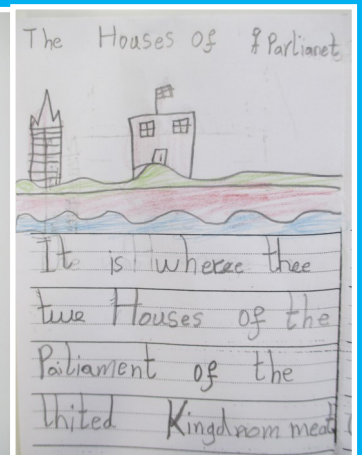 The Houses of Parlianet
It is wheree thee
twe Houses of the
Pailiament of the
United Kingdnom meat